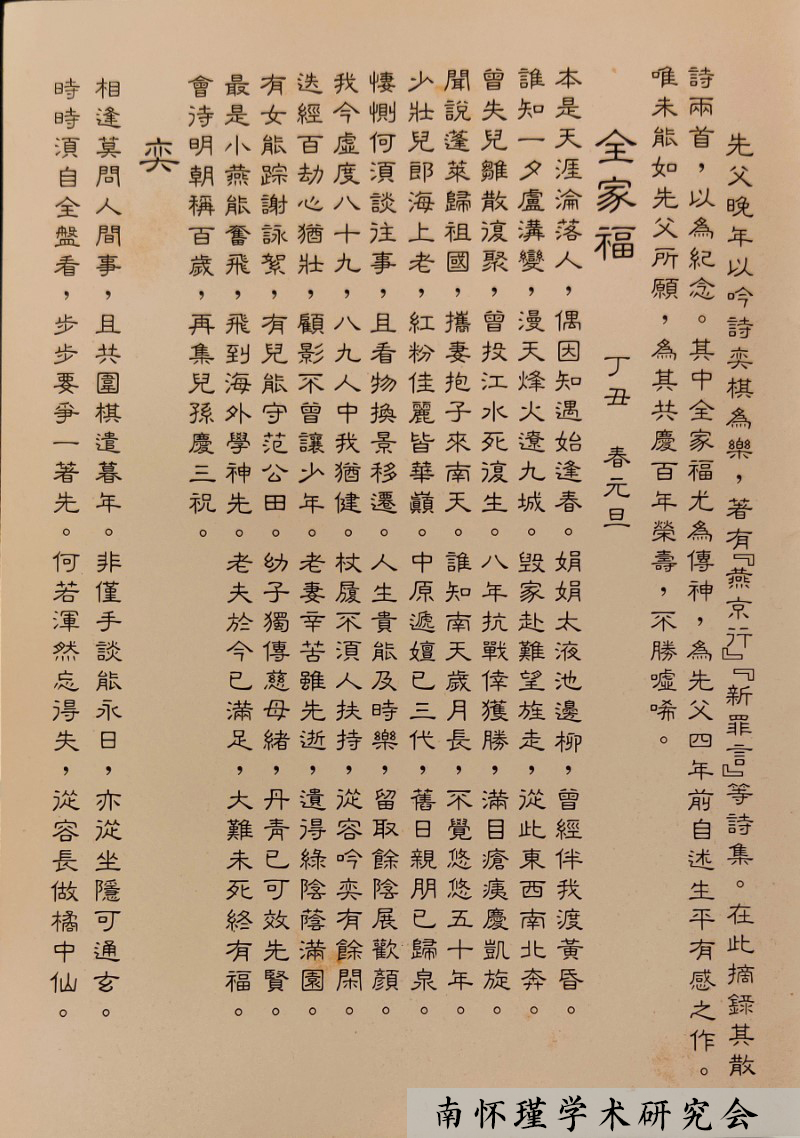 先父晚年以吟詩奕棋為樂，著有『燕京行』『新罪言』等詩集。在此摘錄其散
詩兩首，以為紀念。其中全家福尤為傳神，為先父四年前自述生平有感之作。
唯未能如先父所願，為其共慶百年榮壽，不勝噓唏。
全家福 丁丑 春元旦
本是天涯淪落人，偶因知遇始逢春。娟娟太液池邊柳，曾經伴我渡黃昏。
誰知一夕盧溝變，漫天烽火遼九城。毀家赴難望旌走，從此東西南北奔。
曾失兒雛散復聚，曾投江水死復生。八年抗戰倖獲勝，滿目瘡痍慶凱旋。
聞說蓬萊歸祖國，攜妻抱子來南天。誰知南天歲月長，不覺悠悠五十年。
少壯兒郎海上老，紅粉佳麗皆華巔。中原遞嬗已三代，舊日親朋已歸泉。
悽惻何須談往事，且看物換景移遷。人生貴能及時樂，留取餘陰展歡顏。
我今虛度八十九，八九人中我猶健。杖履不須人扶持，從容吟奕有餘閑。
迭經百劫心猶壯，顧影不曾讓少年。老妻辛苦雖先逝，遺得綠陰蔭滿園。
有女能踪謝詠絮，有兒能守范公田。幼子獨傳慈母緒，丹青已可效先賢。
最是小燕能奮飛，飛到海外學神先。老夫於今已滿足，大難未死終有福。
會待明朝稱百歲，再集兒孫慶三祝。
奕
相逢莫問人間事，且共圍棋遣暮年。非僅手談能永日，亦從坐隱可通玄。
時時須自全盤看，步步要爭一著先。何若渾然忘得失，從容長做橘中仙。
南怀瑾学术研究会